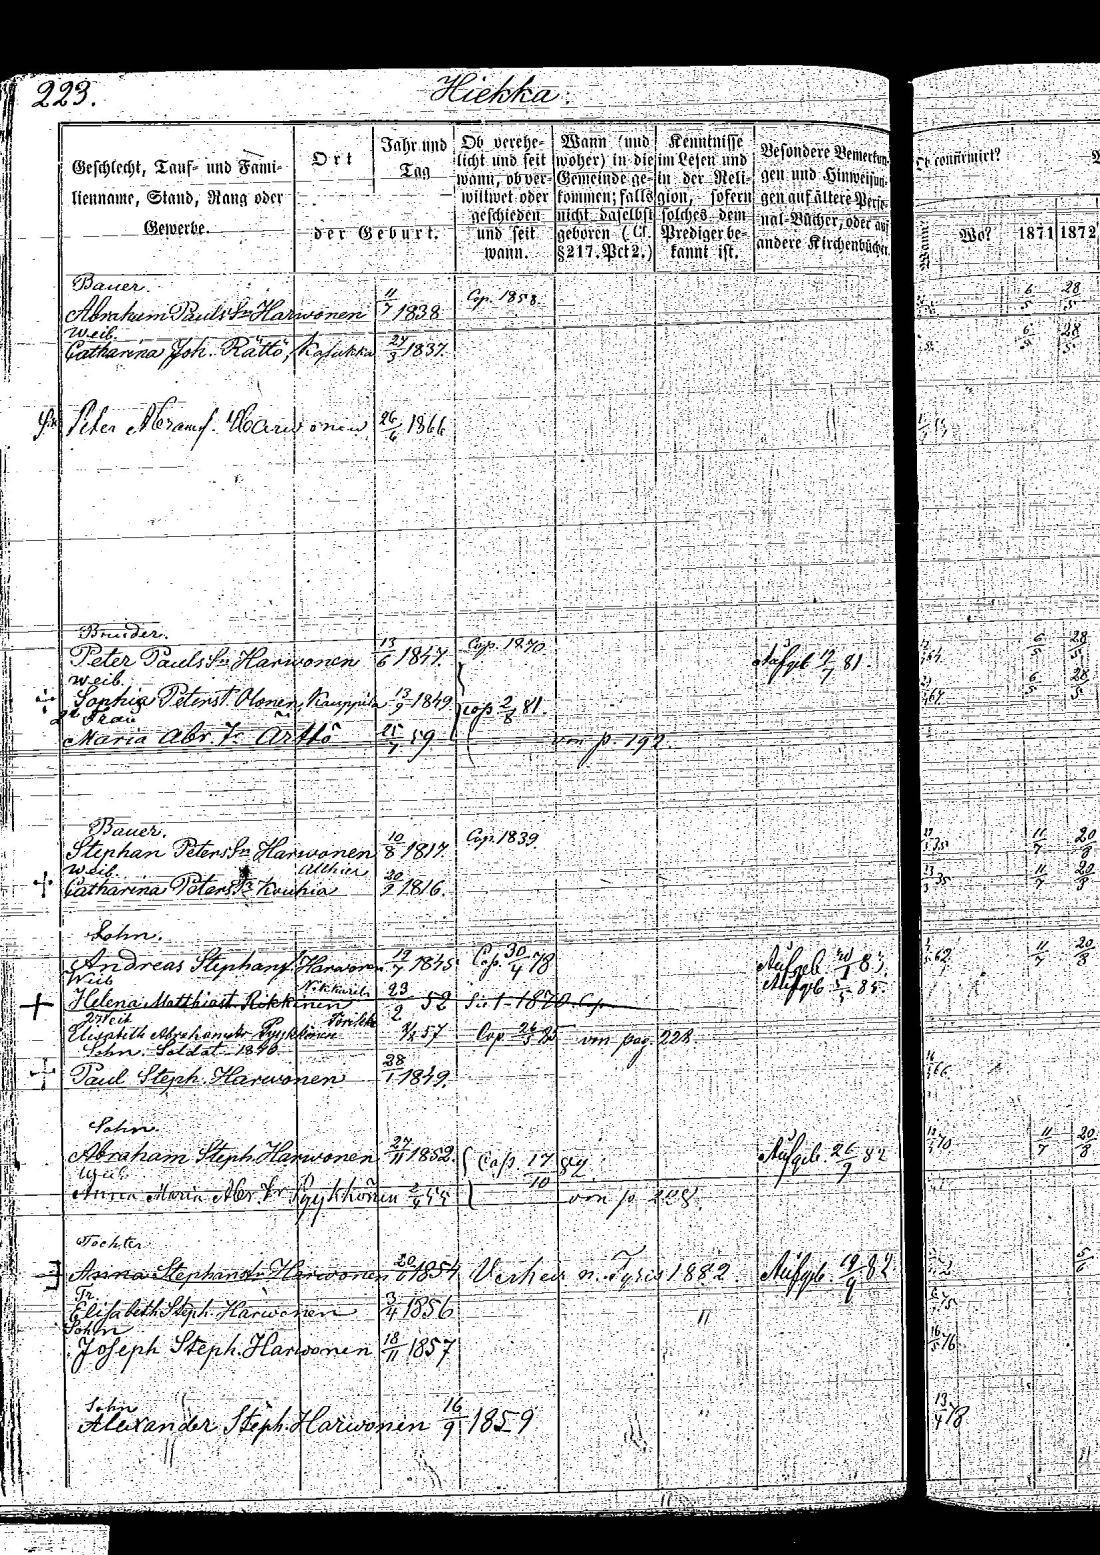 223.
Hiekka.
Geschlecht, Tauf- und Familienname, Stand, Rang oder Gewerbe.
Ort
Jahr und Tag
der Geburt.
Ob verehelicht und seit wann, ob verwittwet oder geschieden und seit wann.
Wann (und woher) in die Gemeinde gekommen; falls nicht daselbst geboren (Cf. §217. Pct 2.)
Kenntnisse im Lesen und in der Religion, sofern solches dem Prediger bekannt ist.
Besondere Bemerkungen und Hinweisungen auf ältere Personal-Bücher, oder auf andere Kirchenbücher.
confirmirt?
Wann?
Wo?
1871
1872
Bauer.
Abraham Pauls Sn Harwonen 11/7 1838 Cop. 1858. 6/5 28/5
Weib.
Catharina Joh. Rättö, 27/3 1837. 6/5 28/5
Peter Abramf. Harwonen 26/6 1866
Bruder.
Peter Pauls Sn Harwonen 13/6 1847. Cop. 1870. Aufgeb. 81. 6/5 28/5
Weib.
Sophia Peterst. Honen, Kauppila 13/9 1849. cop 2/8 81. 6/5 28/5
2te Frau
Maria Abr. Tr Ärttö 59 von p. 192.
Bauer.
Stephan Peters Sn Harwonen 10/8 1817. Cop. 1839. 11/7 20/8
Weib.
Catharina Peters Tr Kauhia 20/2 1816. 11/7 20/8
Sohn.
Andreas Stephansf. Harwonen 1845. Cop. 30/4 78 Aufgeb. 83. 11/7 20/8
Weib Aufgeb. 85.
Helena Matthiast. Rokkinen 23/2 52
2. Weib
Elisabeth Abrahamstr Pyykkönen 57 Cop. 85 von pag. 228
Sohn. Soldat.
Paul Steph. Harwonen 28/1 1849.
Sohn.
Abraham Steph. Harwonen 27/11 1852. Cop. 17/10 82. Aufgeb. 26/9 82 11/7 20/8
Weib
Anna Maria Abr. Tr Pyykkönen 55 von p. 228
Tochter
Anna Stephanstr Harwonen 20/6 1854 Verheir. n. Tyris 1882. Aufgeb. 19/9 82
Tr.
Elisabeth Steph. Harwonen 3/4 1856
Sohn
Joseph Steph. Harwonen 18/11 1857
Sohn
Alexander Steph. Harwonen 16/9 1859